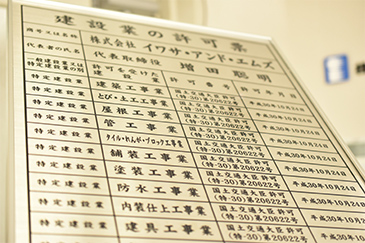 建設業の許可票
商号又は名称 株式会社 イワサ・アンド・エムズ
代表者の氏名 代表取締役 増田聡明
一般建設業又は特定建設業の別 許可を受けた 許可番号 許可年月日
特定建設業 建築工事業 国土交通大臣許可(特-30)第20622号 平成30年10月24日
特定建設業 とび・土工工事業 国土交通大臣許可(特-30)第20622号 平成30年10月24日
特定建設業 屋根工事業 国土交通大臣許可(特-30)第20622号 平成30年10月24日
特定建設業 管工事業 国土交通大臣許可(特-30)第20622号 平成30年10月24日
特定建設業 タイル・れんが・ブロック工事業 国土交通大臣許可(特-30)第20622号 平成30年10月24日
特定建設業 舗装工事業 国土交通大臣許可(特-30)第20622号 平成30年10月24日
特定建設業 塗装工事業 国土交通大臣許可(特-30)第20622号 平成30年10月24日
特定建設業 防水工事業 国土交通大臣許可(特-30)第20622号 平成30年10月24日
特定建設業 内装仕上工事業 国土交通大臣許可(特-30)第20622号 平成30年10月24日
特定建設業 建具工事業 国土交通大臣許可